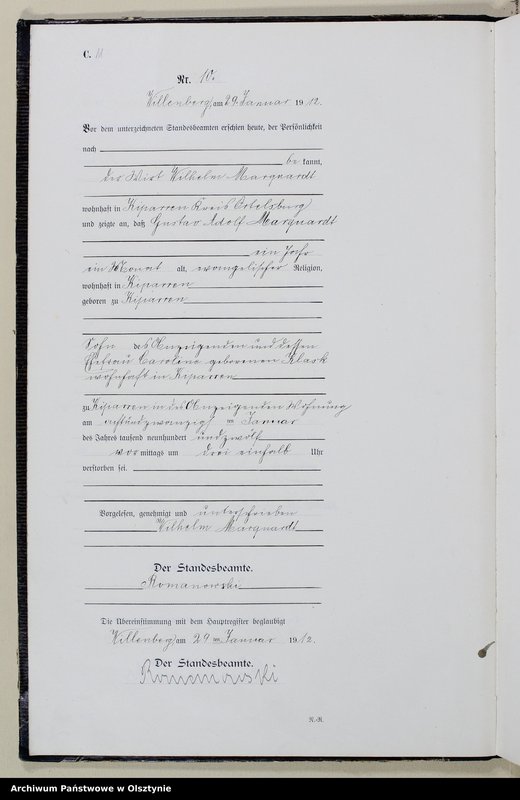 C.
Nr. 10.
Willenberg am 29. Januar 1912.
Vor dem unterzeichneten Standesbeamten erschien heute, der Persönlichkeit
nach
be kannt,
der Wirt Wilhelm Marquardt
wohnhaft in Kiparren Kreis Ortelsburg
und zeigte an, daß Gustav Adolf Marquardt
ein Jahr
ein Monat alt, evangelischer Religion,
wohnhaft in Kiparren
geboren zu Kiparren
Sohn des Anzeigenden und dessen
Ehefrau Caroline geborenen Klask
wohnhaft in Kiparren
zu Kiparren in des Anzeigenden Wohnung
am achtundzwanzigsten Januar
des Jahres tausend neunhundert und zwölf
vor mittags um drei einhalb Uhr
verstorben sei.
Vorgelesen, genehmigt und unterschrieben
Wilhelm Marquardt
Der Standesbeamte.
Romanowski
Die Übereinstimmung mit dem Hauptregister beglaubigt
Willenberg am 29 ten Januar 1912.
Der Standesbeamte.
Romanowski
Archiwum Państwowe w Olsztynie